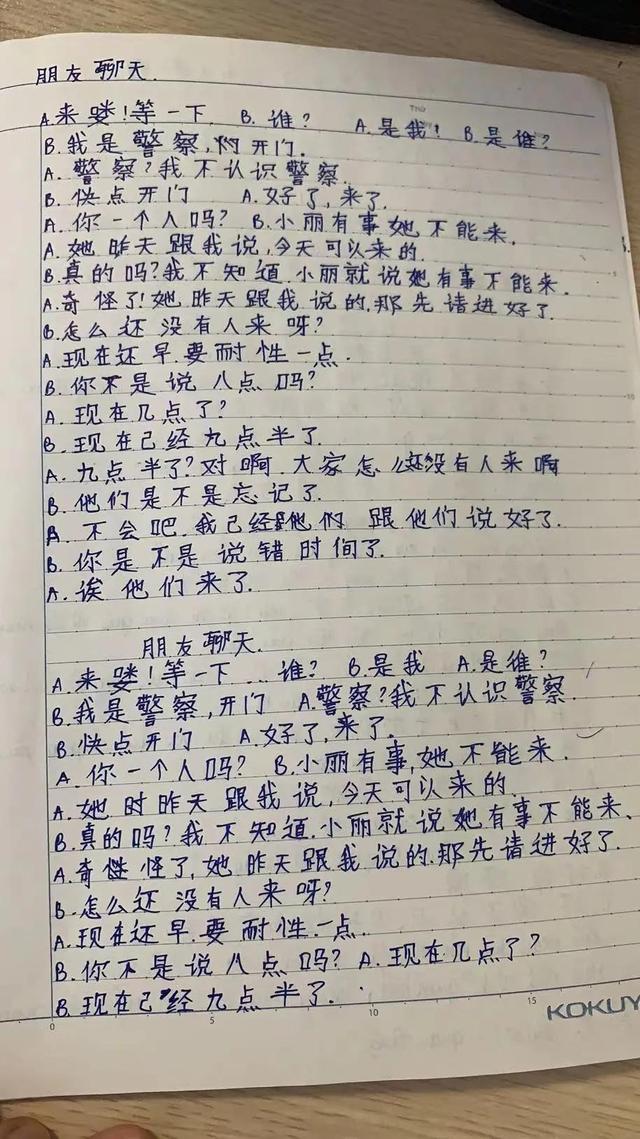 朋友聊天.
A.来喽!等一下. B.谁? A.是我! B.是谁?
B.我是警察,开门.
A.警察?我不认识警察.
B.快点开门 A.好了,来了.
A.你一个人吗? B.小丽有事她不能来.
A.她昨天跟我说,今天可以来的.
B.真的吗?我不知道.小丽就说她有事不能来.
A.奇怪了!她昨天跟我说的.那先请进好了.
B.怎么还没有人来呀?
A.现在还早.要耐性一点.
B.你不是说八点吗?
A.现在几点了?
B.现在己经九点半了.
A.九点半了?对啊.大家怎么还没有人来啊
B.他们是不是忘记了.
A.不会吧.我己经他们跟他们说好了.
B.你是不是说错时间了.
A.诶他们来了.
朋友聊天.
A.来喽!等一下...谁? B.是我 A.是谁?
B.我是警察,开门 A.警察?我不认识警察.
B.快点开门 A.好了,来了.
A.你一个人吗? B.小丽有事,她不能来.
A.她时昨天跟我说,今天可以来的.
B.真的吗?我不知道.小丽就说她有事不能来、
A.奇性怪了,她昨天跟我说的.那先请进好了.
B.怎么还没有人来呀?
A.现在还早.要耐性一点.
B.你不是说八点吗? A.现在几点了?
B.现在己经九点半了.
0 5 10 15 KOKUY